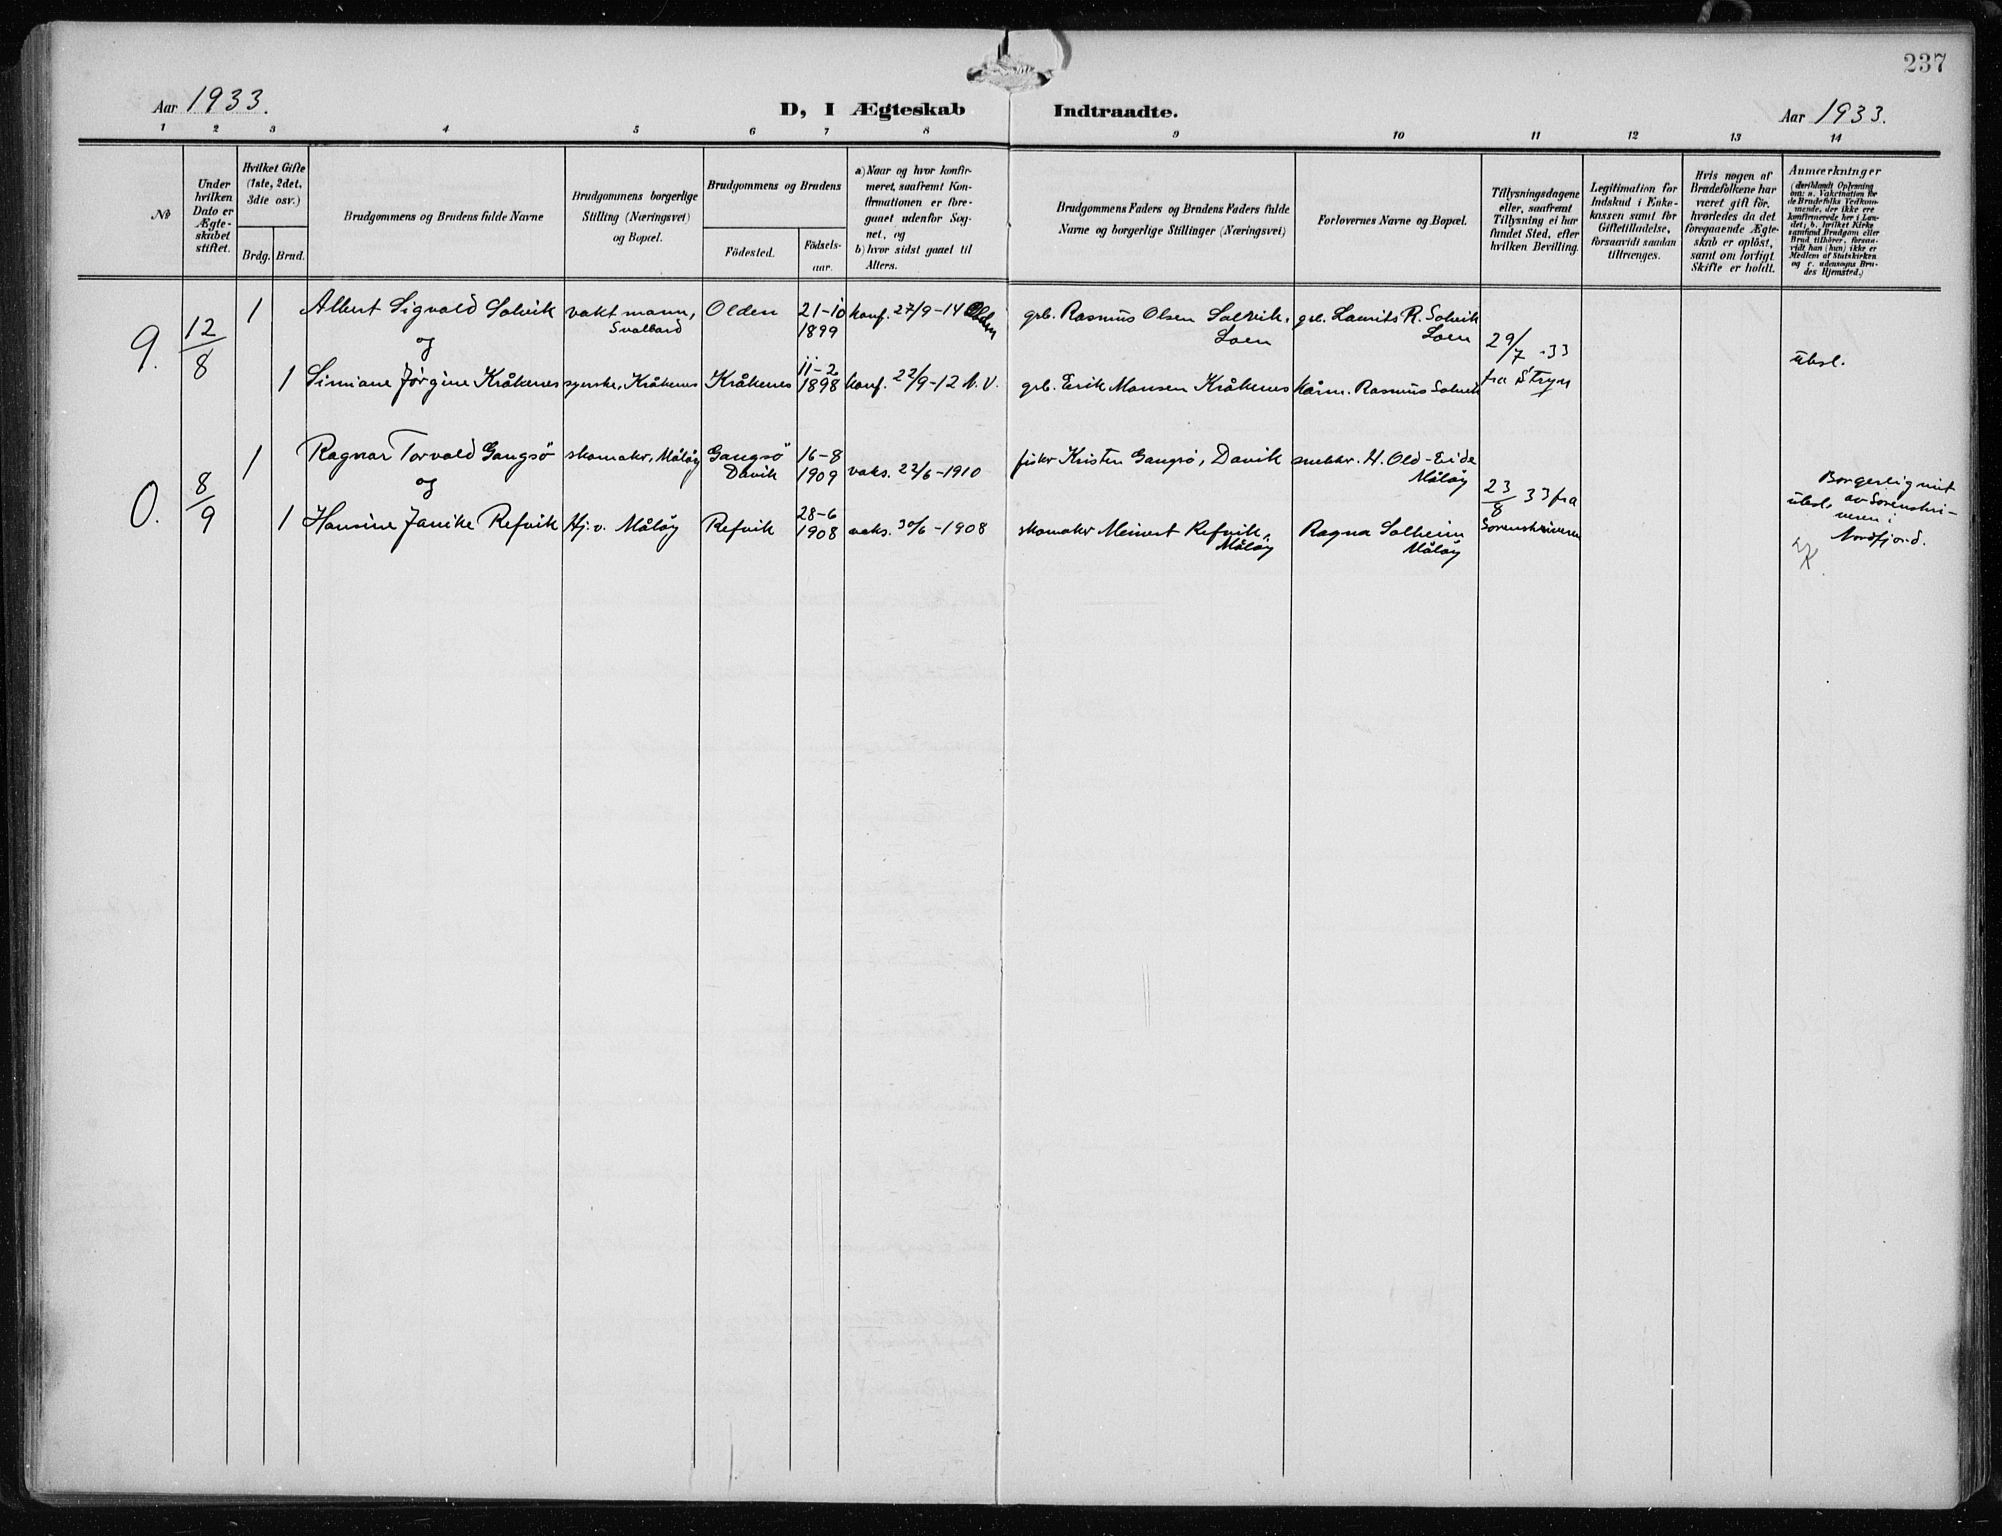 237
Aar 1933.
D, I Ægteskab Indtraadte.
Aar 1933.
1 2 3 4 5 6 7 8 9 10 11 12 13 14
No
Under
hvilken
Dato er
Ægte-
skabet
stiftet.
Hvilket Gifte
(1ste, 2det,
3die osv.)
Brdg. Brud.
Brudgommens og Brudens fulde Navne
Brudgommens borgerlige
Stilling (Næringsvei)
og Bopæl.
Brudgommens og Brudens
Födested.
Födsels-
aar.
a) Naar og hvor konfir-
meret, saafremt Kon-
firmationen er fore-
gaaet udenfor Sog-
net, og
b) hvor sidst gaaet til
Alters.
Brudgommens Faders og Brudens Faders fulde
Navne og borgerlige Stillinger (Næringsvei)
Forlovernes Navne og Bopæl.
Tillysningsdagene
eller, saafremt
Tillysning ei har
fundet Sted, efter
hvilken Bevilling.
Legitimation for
Indskud i Enke-
kassen samt for
Giftetilladelse,
forsaavidt saadan
tiltrænges.
Hvis nogen af
Brudefolkene har
været gift för,
hvorledes da det
foregaaende Ægte-
skab er oplöst,
samt om lovligt
Skifte er holdt.
Anmærkninger
(deriblandt Oplysning
om: a. Vaksination for
de Brudefolks Vedkom-
mende, der ikke ere
konfirmerede her i Lan-
det; b. hvilket Kirke
samfund Brudgom eller
Brud tilhörer, forsaa-
vidt han (hun) ikke er
Medlem af Statskirken
og c. udensogns Bru-
des Hjemsted.)
9. 12/8 1 Albert Sigvald Solvik vaktmann, Svalbard Olden 21-10 1899 konf. 27/9-14 Olden grb. Rasmus Olsen Solvik, Loen grb. Laurits R. Solvik Loen
og
29/7 -33 fra Stryn
ubsl.
1 Simiane Jørgine Kråkenes syerske, Kråkenes Kråkenes 11-2 1898 konf. 22/9-12 N.V. grb. Erik Monsen Kråkenes Kårm. Rasmus Solvik
0. 8/9 1 Ragnar Torvald Gangsö skomaker, Måløy Gangsö Davik 16-8 1909 vaks. 22/6-1910 fiskr Kristen Gangsö, Davik snekkr. H. Old-Eide Måløy
og
23/8 33 fra Sorenskriveren
Borgerlig viet
ubsl. av Sorenskri-
veren i
Nordfjord.
1 Hansine Janike Refvik Hj.v. Måløy Refvik 28-6 1908 vaks. 30/6-1908 skomaker Meinert Refvik, Måløy Ragna Solheim Måløy